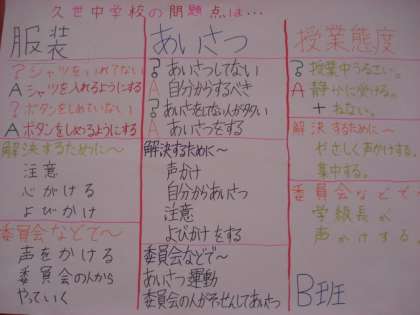 久世中学校の問題点は…
服装
?シャツをいれてない
Aシャツを入れるようにする
?ボタンをしめていない
Aボタンをしめるようにする
解決するために～
注意
心がける
よびかけ
委員会などで～
声をかける
委員会の人から
やっていく
あいさつ
?あいさつしてない
A自分からするべき
?あいさつをしてない人が多い
Aあいさつをする
解決するために～
声かけ
自分からあいさつ
注意
よびかけをする
委員会などで～
あいさつ運動
委員会の人がそっせんしてあいさつ
授業態度
?授業中うるさい。
A静かに受ける。
+ねない。
解決するために～
やさしく声かけする。
集中する。
委員会などで
学級長が
声かけする。
B班